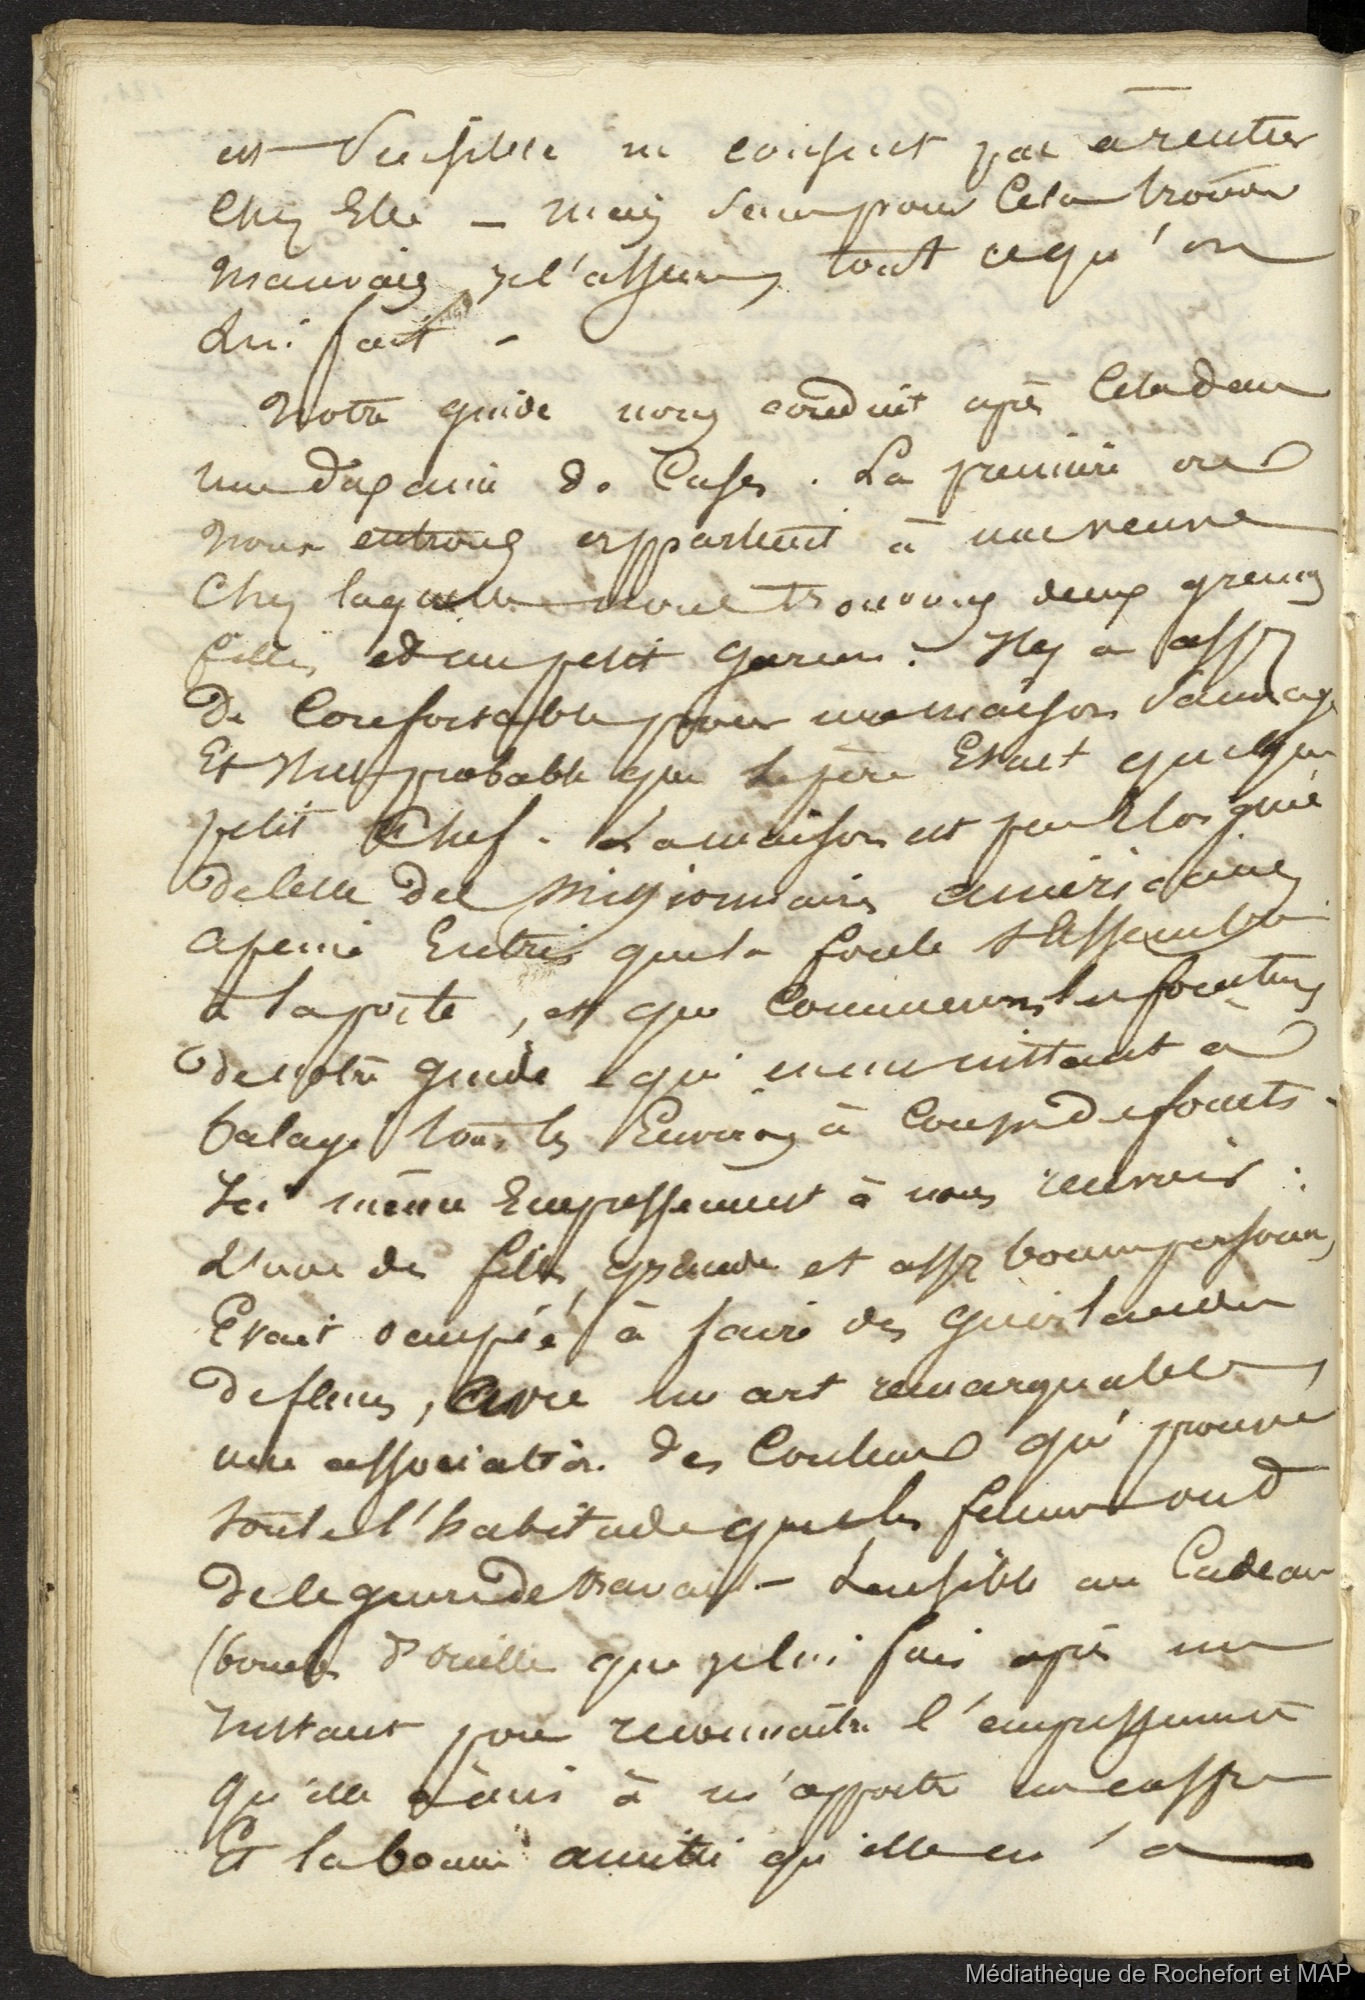 est sensible ne consent pas à rentrer
Chez Elle – mais sans pour Cela trouver
mauvais, je l'assure, tout ce qu'on
lui fait –
Notre guide nous conduit après Cela dans
une dixaine de Cases. La première où
nous entrons appartient à une veuve
Chez laquelle nous trouvons deux grandes
filles et un petit garçon. Il y a assez
de Confortable pour une maison sauvage
Et il est probable que le père Etait quelque
petit Chef. La maison est peu Eloignée
de celle des Missionnaires américains,
a peine Entrés que la foule s'assemble
à la porte, et que Commencent les fonctions
de notre guide qui
balaye tous les Environs à Coups de fouets.
Ici même Empressement à nous recevoir :
L'une des filles, grande et assez bonne personne,
Etait occupée à faire des guirlandes
de fleurs, avec un art remarquable,
une association des Couleurs qui prouve
toute l'habitude que les femmes ont
de le genre de travail – Sensible au Cadeau
(boucles d'oreilles que je lui fais après un
Instant pour reconnaitre l'empressement
qu'elle a mis à m'apporter un coffre
Et la bonne amitié qu'elle m'a
Médiathèque de Rochefort et MAP